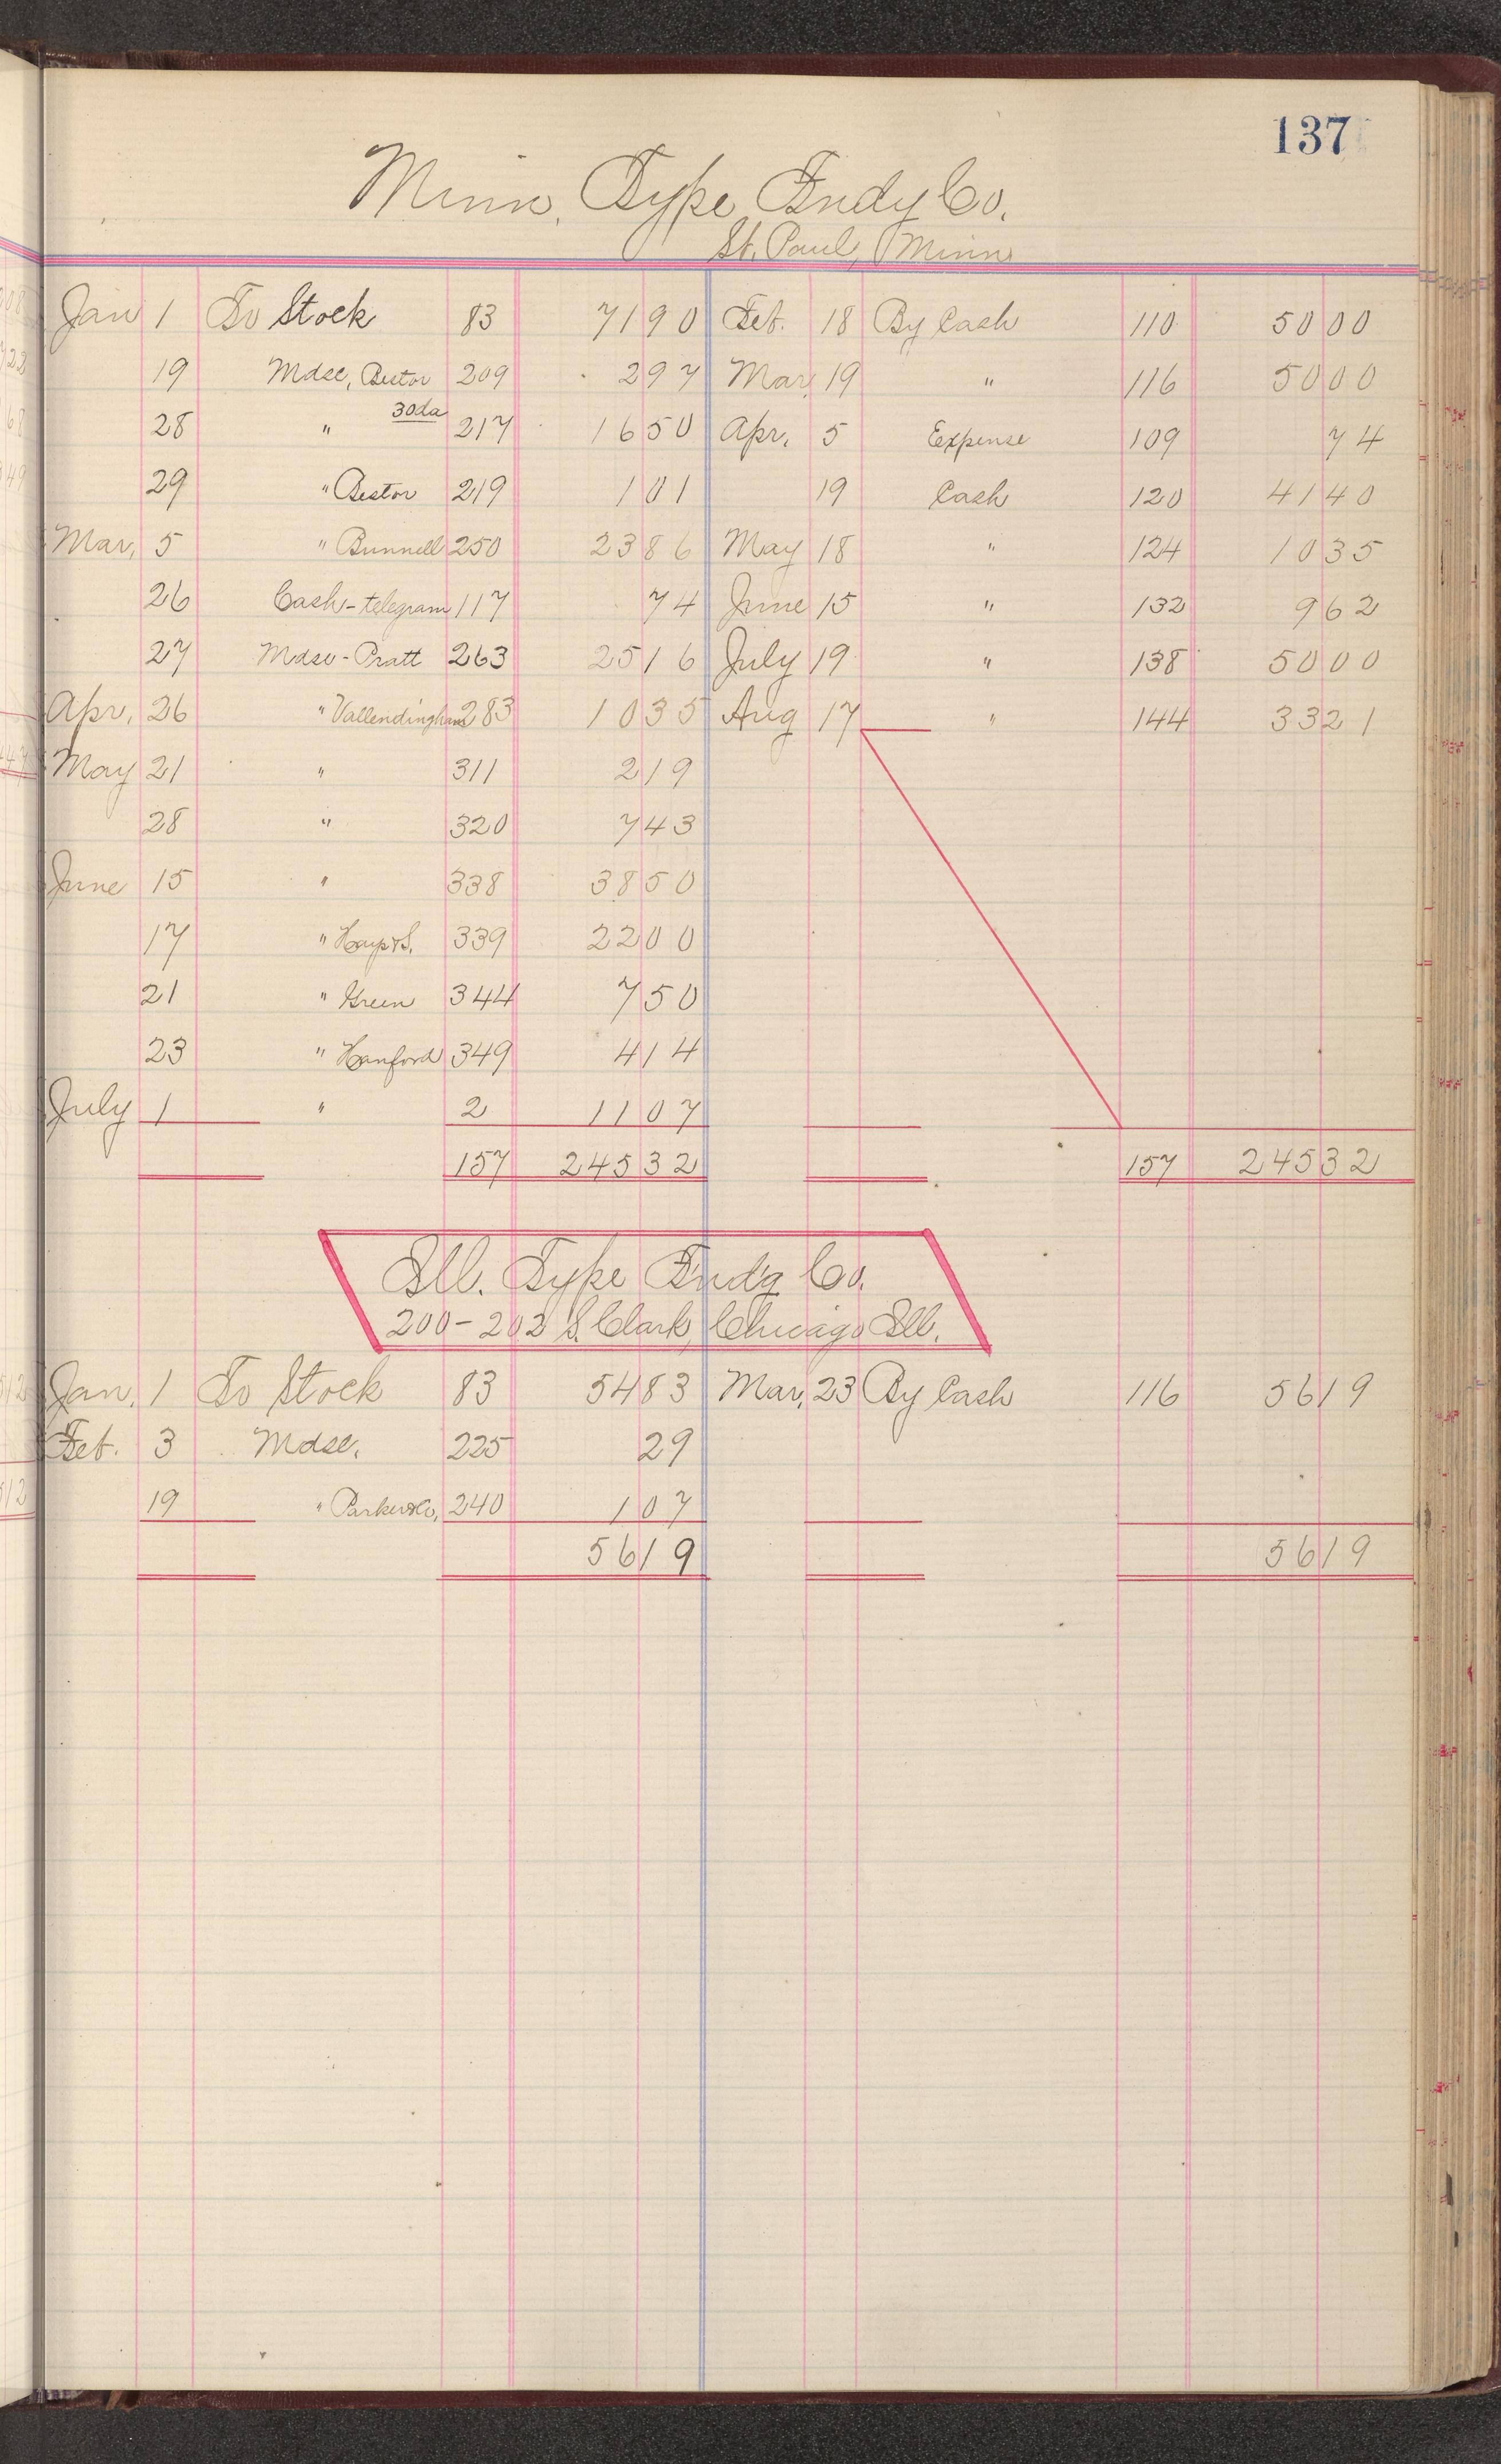 137
Minn. Type Fndy Co.
St. Paul, Minn
Jan 1 To Stock 83 7190 Feb. 18 By Cash 110 5000
19 Mdse, Bestor 209 297 Mar, 19 " 116 5000
28 " 30da 217 1650 Apr, 5 Expense 109 74
29 " Bestor 219 101 19 Cash 120 4140
Mar, 5 " Bunnell 250 2386 May 18 " 124 1035
26 Cash-telegram 117 74 June 15 " 132 962
27 Mdse-Pratt 263 2516 July 19 " 138 5000
Apr, 26 " Vallendingham 283 1035 Aug 17 " 144 3321
May 21 " 311 219
28 " 320 743
June 15 " 338 3850
17 " Hays&S. 339 2200
21 " Green 344 750
23 " Hanford 349 414
July 1 " 2 1107
157 24532 157 24532
Ill. Type Fndg Co.
200-202 S. Clark, Chicago Ill.
Jan, 1 To Stock 83 5483 Mar, 23 By Cash 116 5619
Feb. 3 Mdse. 225 29
19 " Parker&Co, 240 107
5619 5619